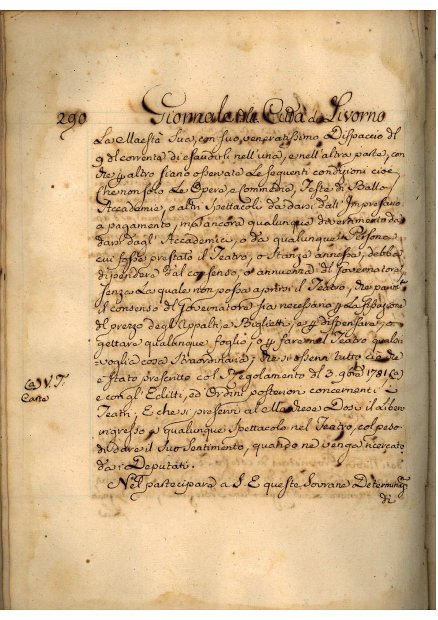 290 Giornale della Città di Livorno
La Maestà Sua, con suo veneratissimo Dispaccio del
9 del corrente di esaudirli nell'una, e nell'altra parte, con
che altro siano osservate le seguenti condizioni cioè
Che non solo Le Opere, e Commedie, Feste di Ballo
Accademie, o altri Spettacoli da darsi dall'Impresario
a pagamento, ma ancora qualunque divertimento da
darsi dagli Accademici, o da qualunque Persona
cui fosse prestato il Teatro, o Stanze annesse, debba
dipendere dal consenso, o annuenza del Governatore
senza La quale non possa aprirsi il Teatro, che
il consenso del Governatore sia necessario La fissazione
del prezzo degli Appalti, e Biglietti, e dispensare, o
gettare qualunque foglio, o fare nel Teatro qualsi
voglia cosa straordinaria; che si osservi tutto ciò che
è stato prescritto col Regolamento di 3. 9bre 1781 (a)
e con gl'Editti, ed Ordini posteriori concernenti i
Teatri; E che si preservi al Dosi il Libero
ingresso a qualunque Spettacolo nel Teatro, col peso
di dare il Suo Sentimento, quando ne venga ricercato
da i Deputati.
Nel partecipare a S. E. queste Sovrane Determinaz.
di
(a) V. F.
Carta